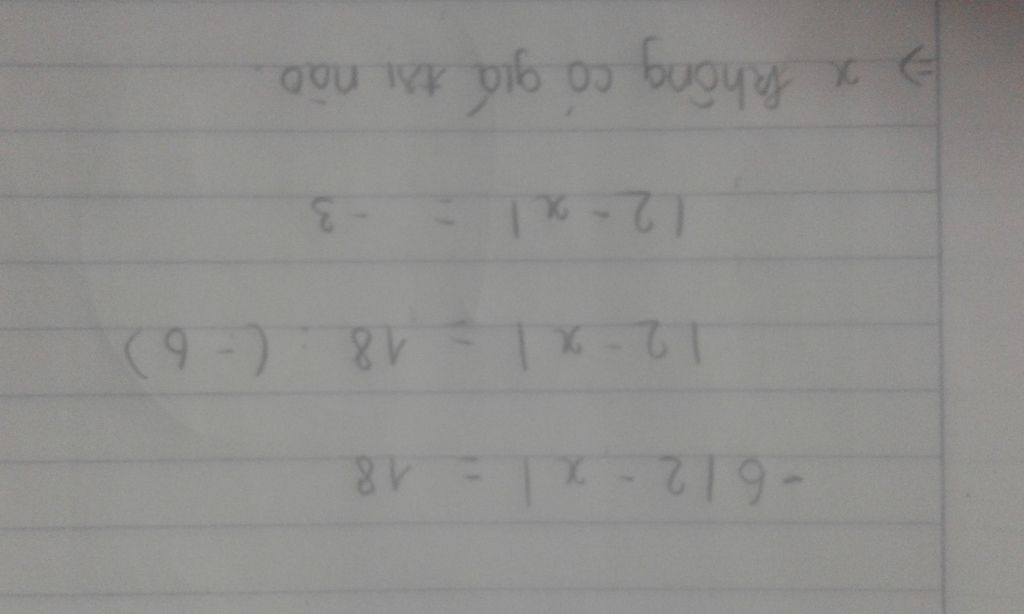 -6|2 - x| = 18
|2 - x| = 18 : (-6)
|2 - x| = -3
=> x không có giá trị nào.